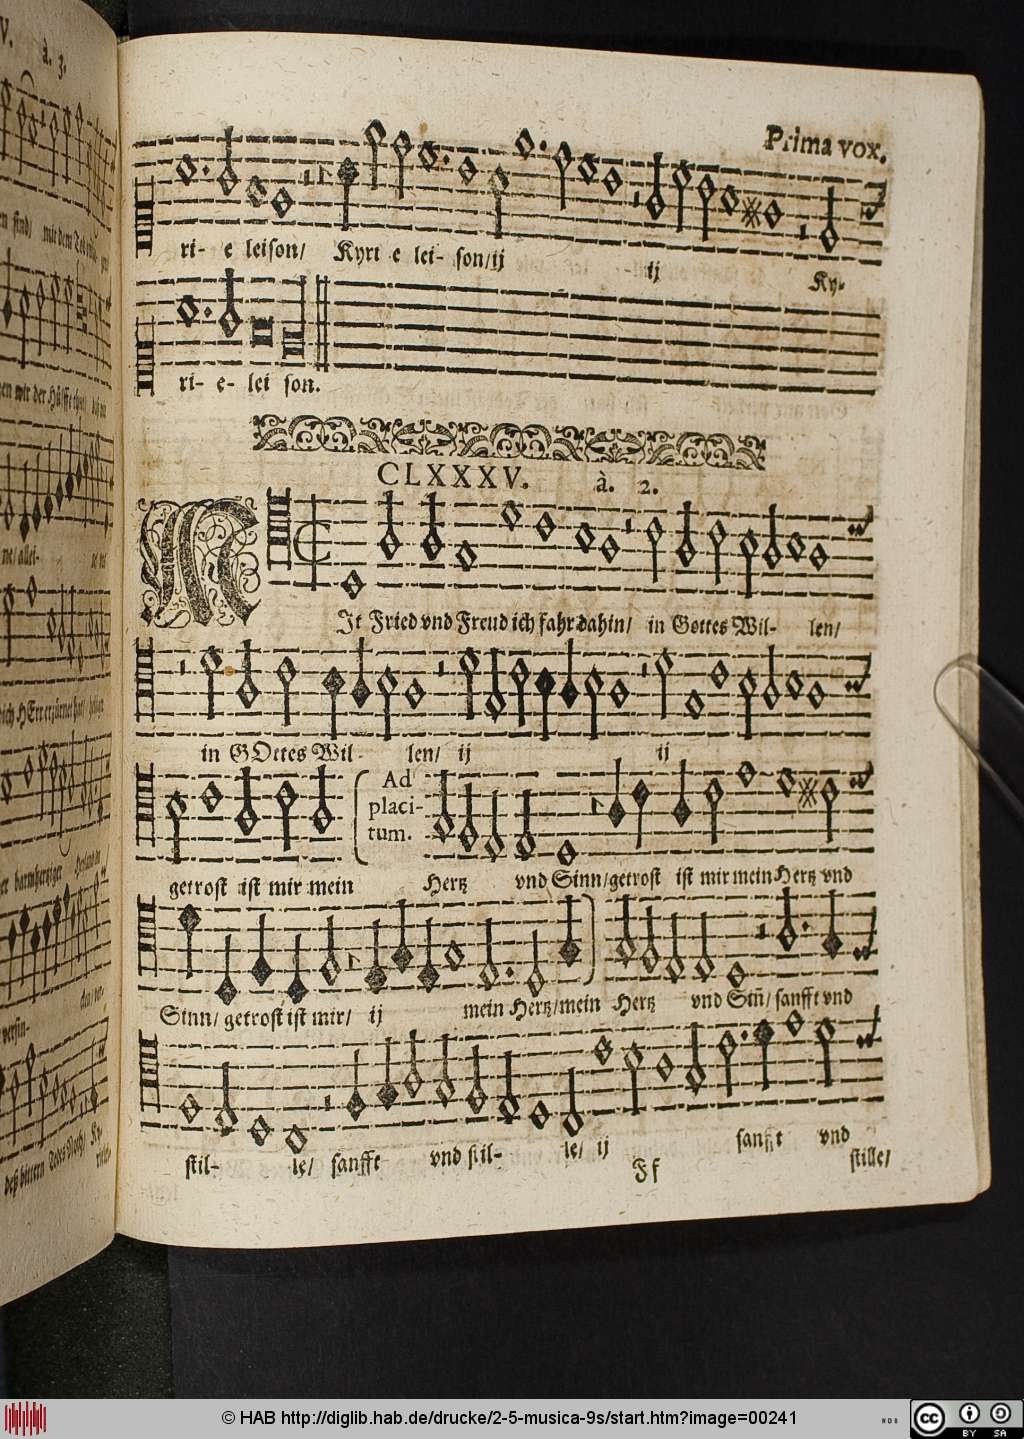 V. à. 3.
Prima vox.
ri- e leison/ Kyri e lei- son/ij -ij Ky-
ri- e- lei son.
CLXXXV. à. 2.
MIt Fried vnd Freud ich fahr dahin/ in Gottes Wil- len/
in GOttes Wil- len/ ij ij
Ad
placi-
tum.
getrost ist mir mein Hertz vnd Sinn/getrost ist mir mein Hertz vnd
Sinn/ getrost ist mir/ ij mein Hertz/mein Hertz vnd Siñ/ sanfft vnd
stil- le/ sanfft vnd stil- le/ ij sanfft vnd
stille/
Ff
© HAB http://diglib.hab.de/drucke/2-5-musica-9s/start.htm?image=00241
cc BY SA